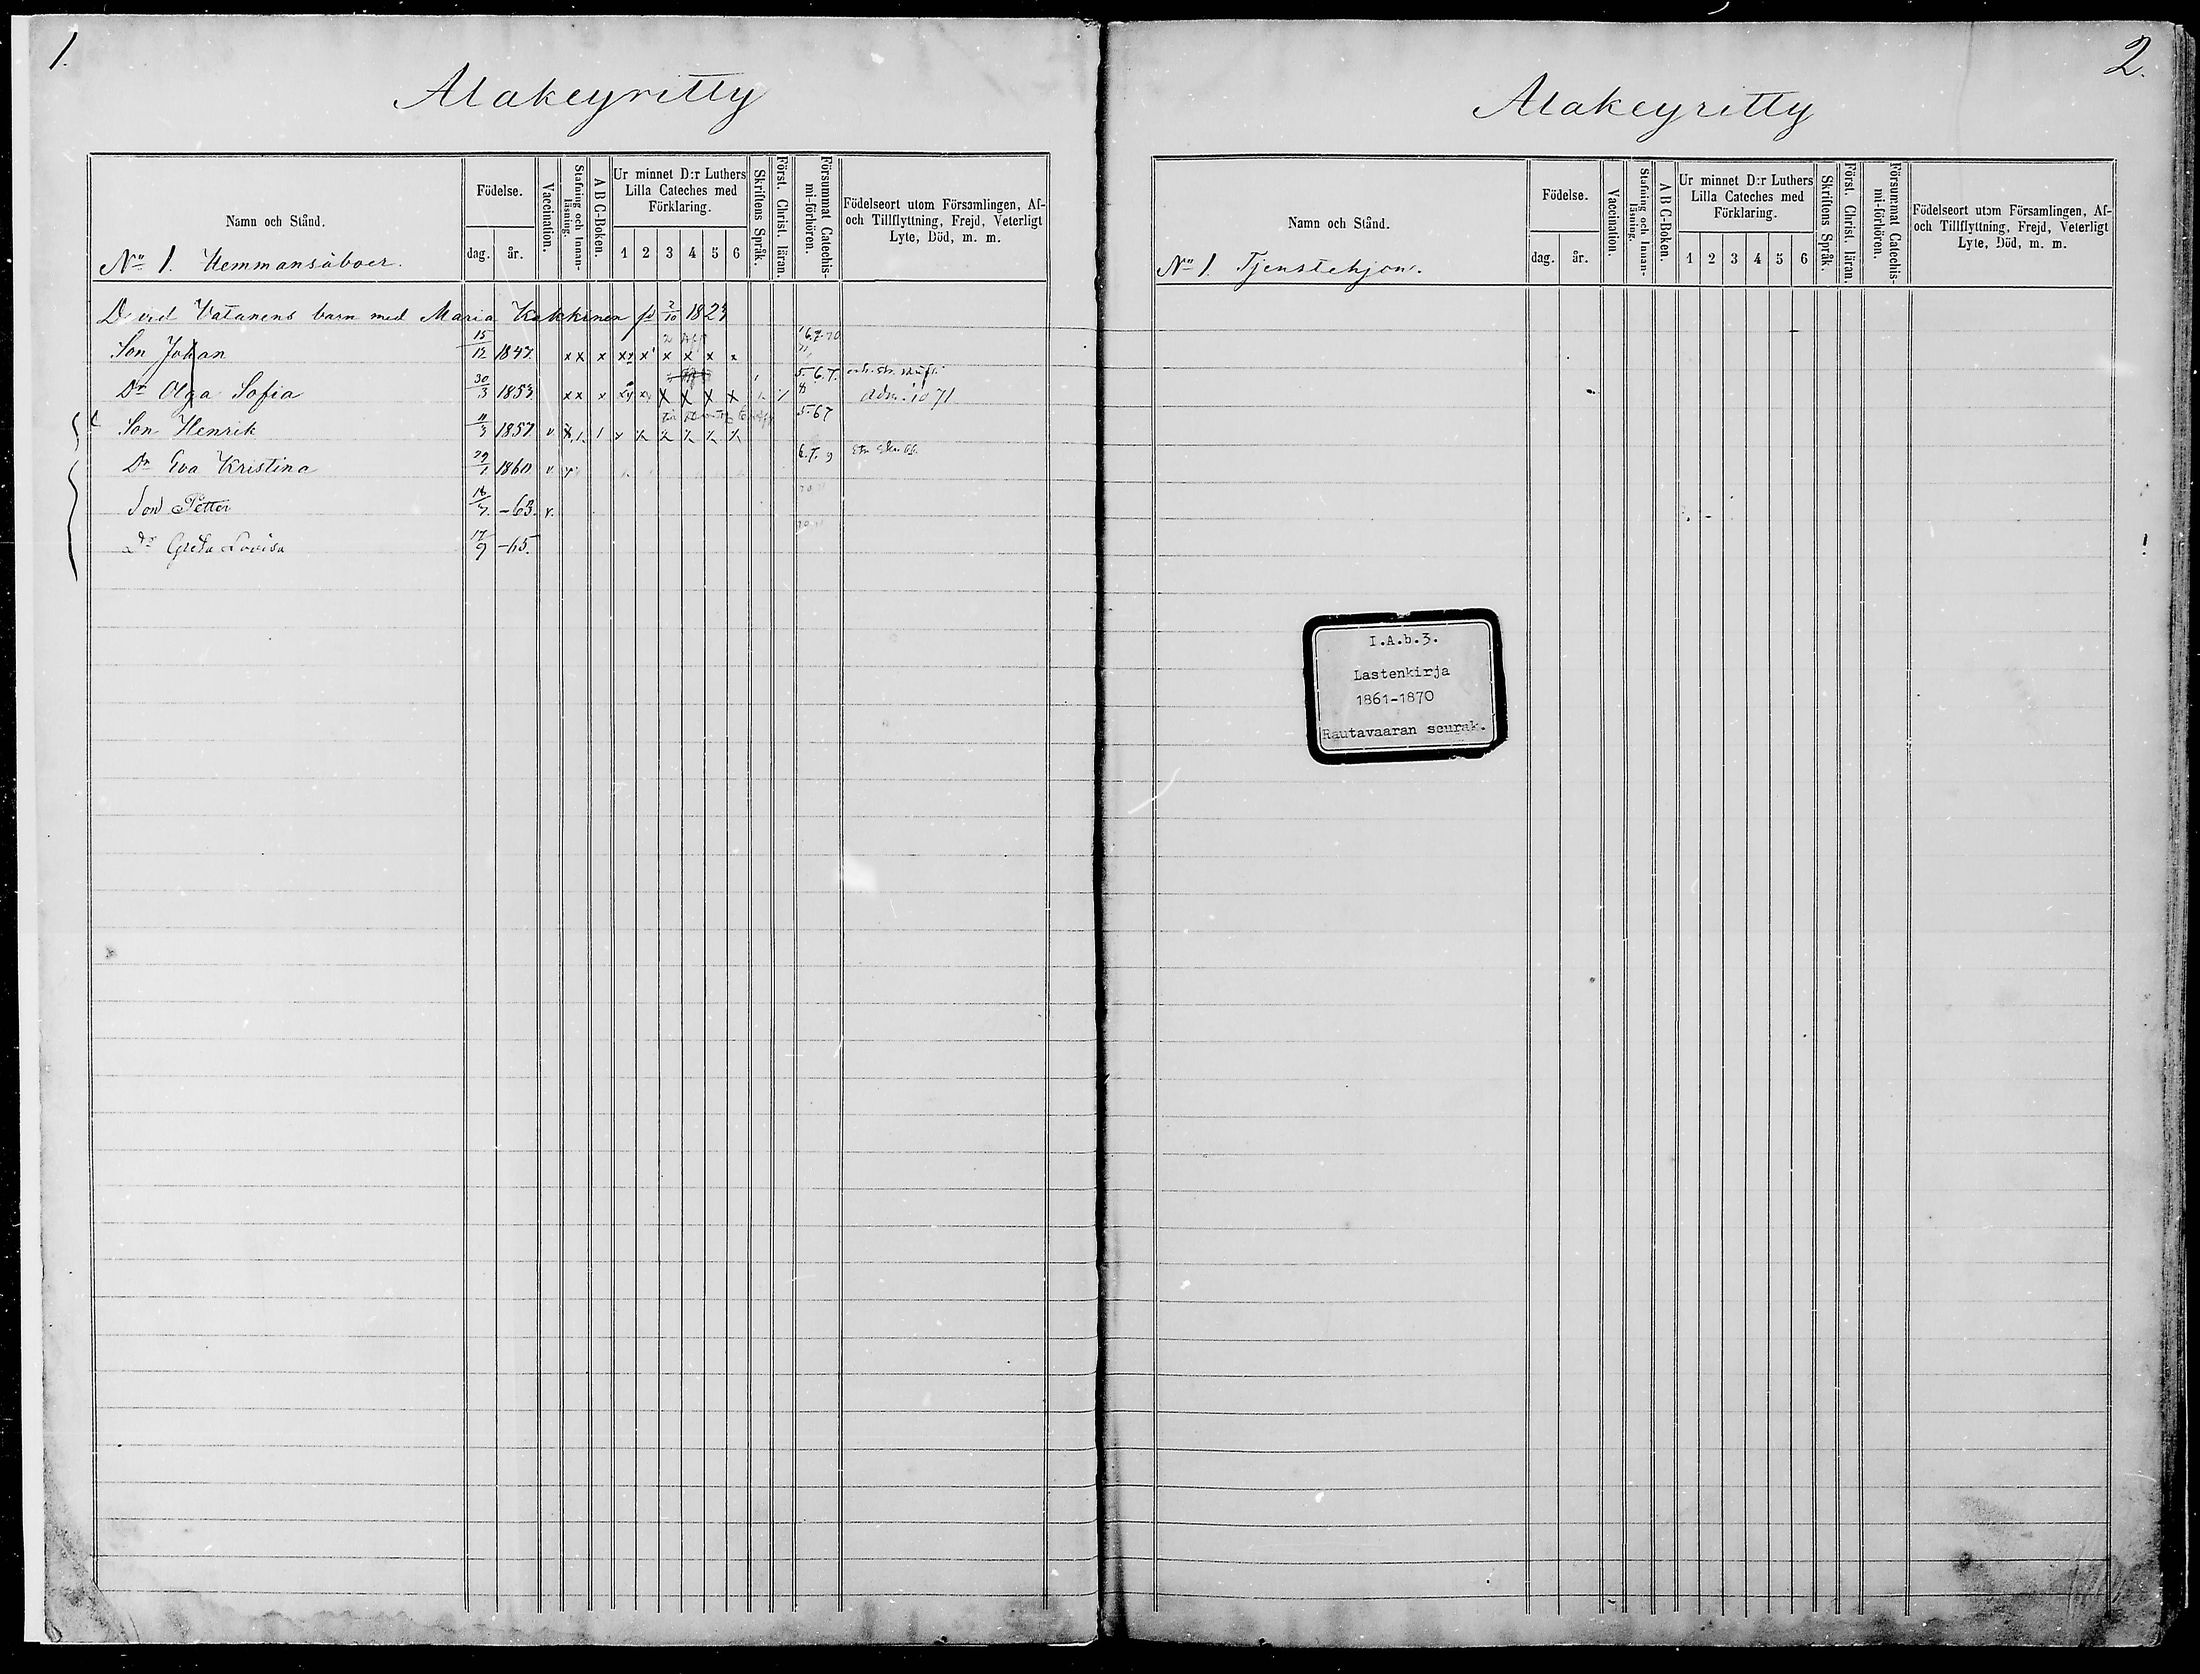 1.
Alakeyritty
Namn och Stånd.
Födelse.
dag. år.
Vaccination.
Stafning och Innanläsning.
A B C-Boken.
Ur minnet D:r Luthers
Lilla Cateches med
Förklaring.
1 2 3 4 5 6
Skriftens Språk.
Först. Christ. läran.
Försummat Catechismi-förhören.
Födelseort utom Församlingen, Af-
och Tillflyttning, Frejd, Veterligt
Lyte, Död, m. m.
No 1. Hemmansåboer.
David Vatanens barn med Maria Kakkinen fd 2/10 1824
Son Johan 15/12 1847. x x x x x x x x
Dr Olga Sofia 30/3 1853 x x x x x x x 5.6.7.
Adm. 1871
Son Henrik 11/3 1857 v. 5.67
Dr Eva Kristina 29/1 1860 v. 6.7.9
Son Petter 18/7 -63. v.
Dr Greta Lovisa 17/9 -65.
2.
Alakeyritty
Namn och Stånd.
Födelse.
dag. år.
Vaccination.
Stafning och Innanläsning.
A B C-Boken.
Ur minnet D:r Luthers
Lilla Cateches med
Förklaring.
1 2 3 4 5 6
Skriftens Språk.
Först. Christ. läran.
Försummat Catechismi-förhören.
Födelseort utom Församlingen, Af-
och Tillflyttning, Frejd, Veterligt
Lyte, Död, m. m.
No 1. Tjenstehjon.
I.A.b.3.
Lastenkirja
1861-1870
Rautavaaran seurak.